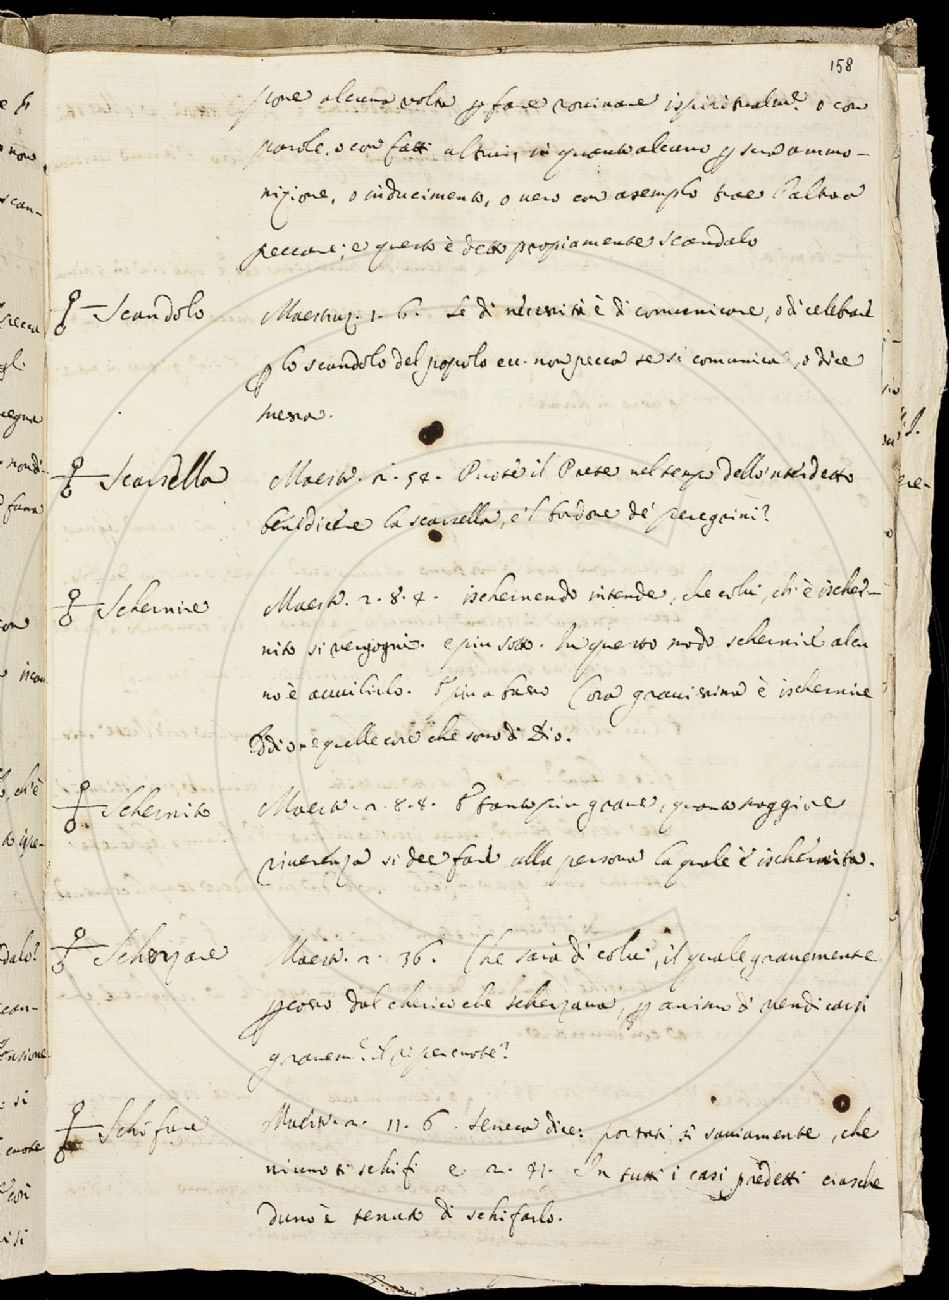 158
pone alcuna volta p fare rovinare ispiritualm.e o con
parole, o con fatti altrui, in quanto alcuno p sua ammo-
nizione, o inducimento, o vero con asemplo trae l'altro a
peccare; e questo è detto propiamente scandalo
Scandolo Maestruz. 1. 6. Se di necessità è di comunicare, o di celebrare
p lo scandolo del popolo ec. non pecca se si comunica, o dice
messa.
Scarsella Maestr. 2. 54. Puote il Prete nel tempo dello 'nterdetto
benedicere la scarsella, e 'l bordone de' peregrini?
Schernire Maestr. 2. 8. 4. ischernendo intende, che colui, ch'è ischer-
nito si vergogni. e più sotto. In questo modo schernire alcu
no è avvilirlo. E più a basso Cosa gravissima è ischernire
Iddio, e quelle cose che sono di Dio.
Schernito Maestr. 2. 8. 8. E tanto più grave, quanto maggiore
riverenza si dee fare alla persona la quale è ischernita.
Scherzare Maestr. 2. 36. Che sarà di colui, il quale gravemente
pcosso dal cherico che scherzava, p animo di vendicarsi
gravem.e il ripercuote?
Schifare Maestr. 2. 11. 6. Seneca dice: portati sì saviamente, che
niuno ti schifi e 2. 41. In tutti i casi predetti ciasche
duno è tenuto di schifarlo.